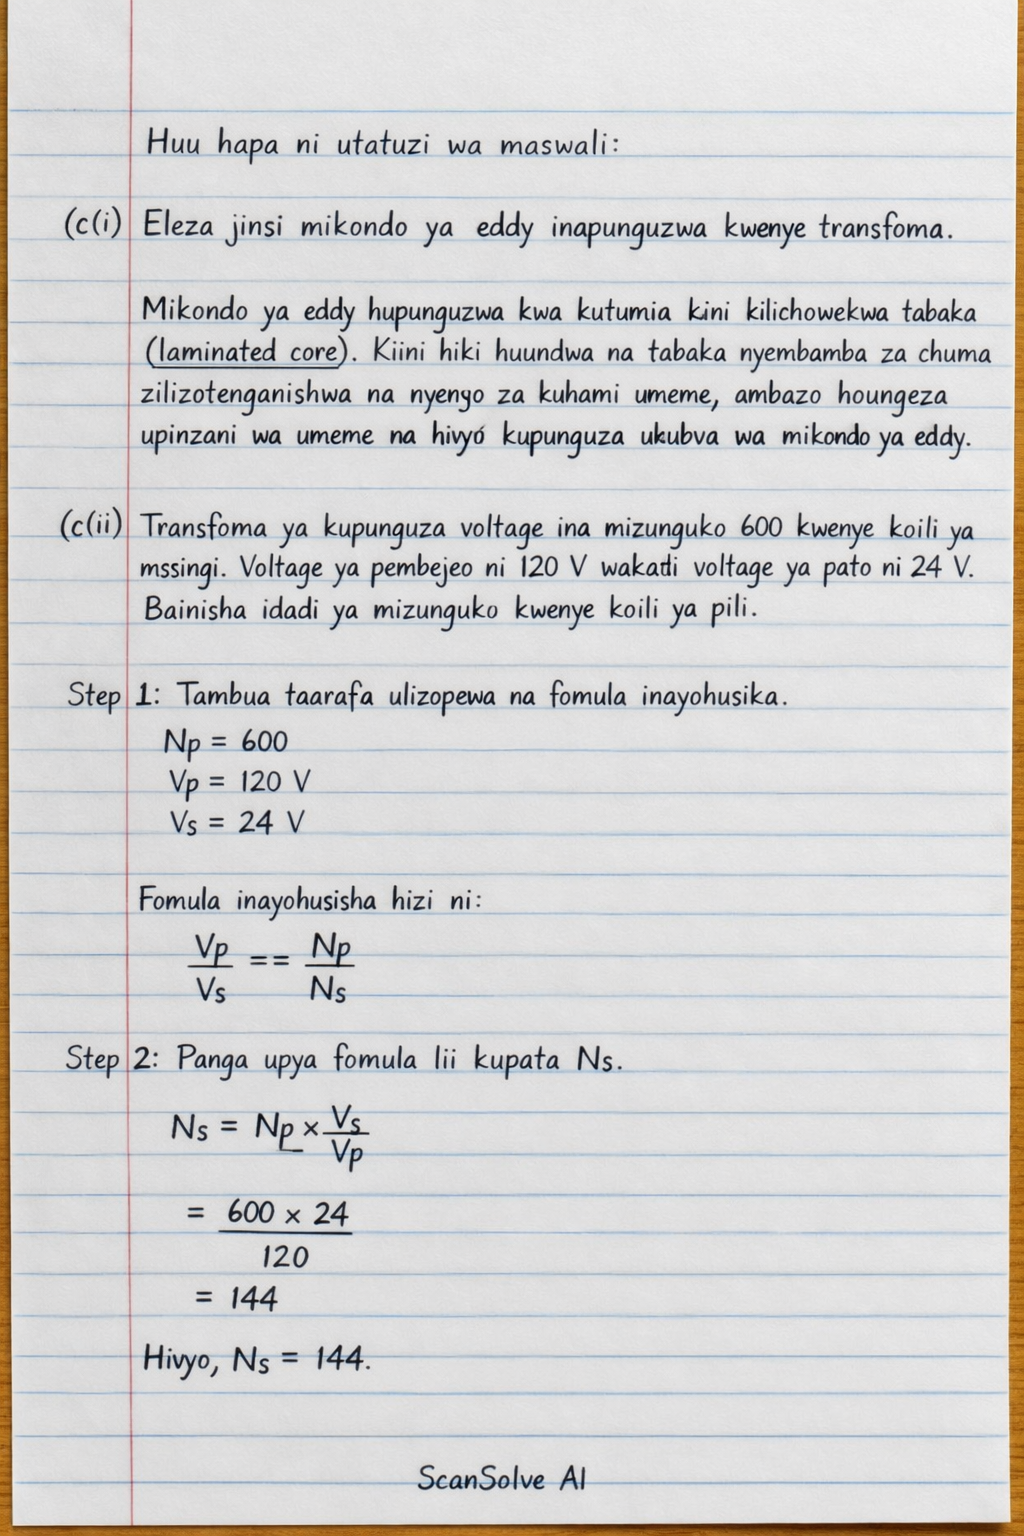 Huu hapa ni utatuzi wa maswali:
(c(i) Eleza jinsi mikondo ya eddy inapunguzwa kwenye transfoma.
Mikondo ya eddy hupunguzwa kwa kutumia kini kilichowekwa tabaka
(laminated core). Kiini hiki huundwa na tabaka nyembamba za chuma
zilizotenganishwa na nyenyo za kuhami umeme, ambazo houngeza
upinzani wa umeme na hivyó kupunguza ukubva wa mikondo ya eddy.
(c(ii) Transfoma ya kupunguza voltage ina mizunguko 600 kwenye koili ya
mssingi. Voltage ya pembejeo ni 120 V wakati voltage ya pato ni 24 V.
Bainisha idadi ya mizunguko kwenye koili ya pili.
Step 1: Tambua taarafa ulizopewa na fomula inayohusika.
Np = 600
Vp = 120 V
Vs = 24 V
Fomula inayohusisha hizi ni:
Vp/Vs == Np/Ns
Step 2: Panga upya fomula lii kupata Ns.
Ns = Np × Vs/Vp
= 600 × 24
120
= 144
Hivyo, Ns = 144.
ScanSolve AI